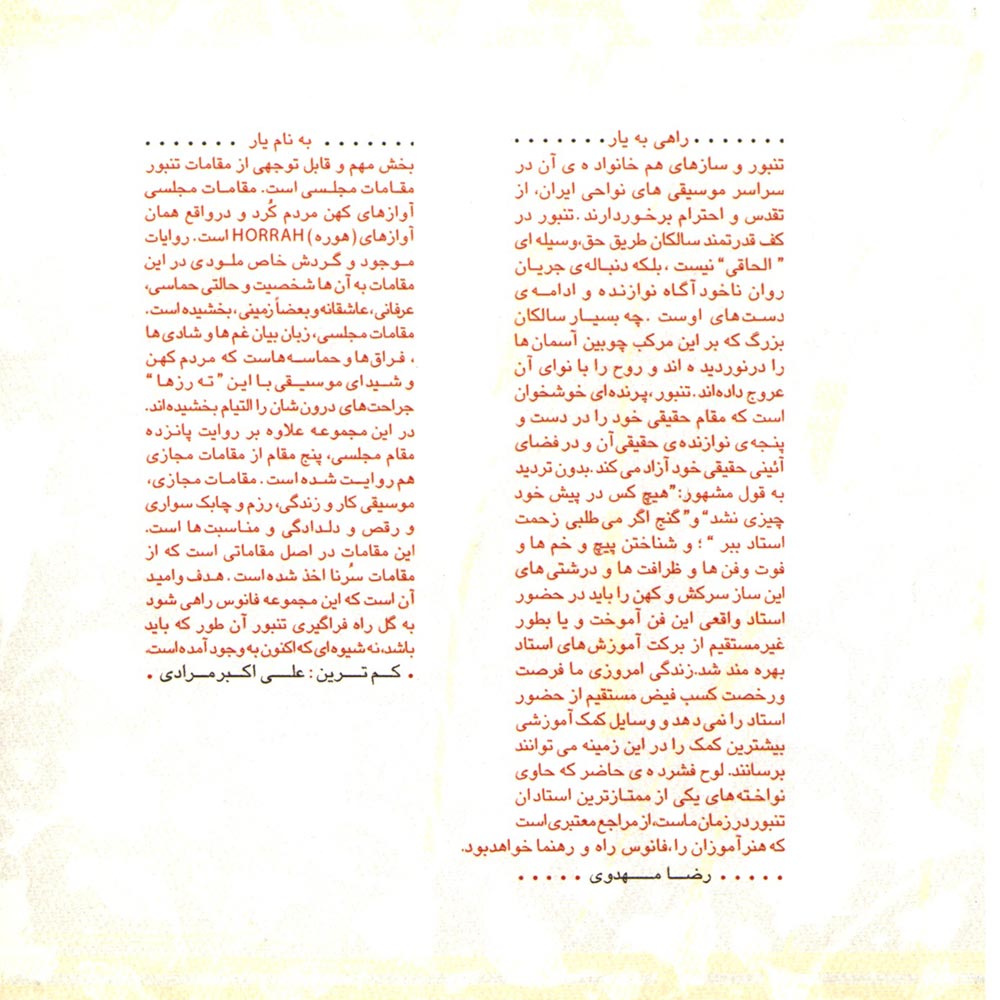 . . . . . . . راهی به یار . . . . . . .
تنبور و سازهای هم خانواد ه ی آن در
سراسر موسیقی های نواحی ایران، از
تقدس و احترام برخوردارند .تنبور در
کف قدرتمند سالکان طریق حق،وسیله ای
” الحاقی“ نیست ،بلکه دنباله‌ی جریان
روان ناخود آگاه نوازنده و ادامه‌ی
دست‌های اوست .چه بسیار سالکان
بزرگ که بر این مرکب چوبین آسمان ها
را درنوردید ه اند و روح را با نوای آن
عروج داده‌اند.تنبور ،پرنده‌ای خوشخوان
است که مقام حقیقی خود را در دست و
پنجه‌ی نوازنده‌ی حقیقی آن و در فضای
آئینی حقیقی خود آزاد می کند .بدون تردید
به قول مشهور:”هیچ کس در پیش خود
چیزی نشد“ و” گنج اگر می طلبی زحمت
استاد ببر “ ؛ و شناختن پیچ و خم ها و
فوت وفن ها و ظرافت ها و درشتی های
این ساز سرکش و کهن را باید در حضور
استاد واقعی این فن آموخت و یا بطور
غیرمستقیم از برکت آموزش‌های استاد
بهره مند شد.زندگی امروزی ما فرصت
ورخصت کسب فیض مستقیم از حضور
استاد را نمی دهد و وسایل کمک آموزشی
بیشترین کمک را در این زمینه می توانند
برسانند. لوح فشرد ه ی حاضر که حاوی
نواخته‌های یکی از ممتازترین استادان
تنبور در زمان ماست،از مراجع معتبری است
که هنر آموزان را ،فانوس راه و رهنما خواهد بود.
. . . . . رضا مهدوی . . . . .
. . . . . . . به نام یار . . . . . . .
بخش مهم و قابل توجهی از مقامات تنبور
مقامات مجلسی است. مقامات مجلسی
آوازهای کهن مردم کُرد و درواقع همان
آوازهای (هوره) HORRAH است. روایات
موجود و گردش خاص ملودی در این
مقامات به آن ها شخصیت و حالتی حماسی،
عرفانی، عاشقانه و بعضاً زمینی، بخشیده است.
مقامات مجلسی، زبان بیان غم‌ها و شادی ها
، فراق‌ها و حماسه‌هاست که مردم کهن
و شیدای موسیقی با این ” ته رزها “
جراحت‌های درون شان را التیام بخشیده‌اند.
در این مجموعه علاوه بر روایت پانزده
مقام مجلسی، پنج مقام از مقامات مجازی
هم روایت شده است . مقامات مجازی،
موسیقی کار و زندگی، رزم و چابک سواری
و رقص و دلدادگی و مناسبت‌ها است.
این مقامات در اصل مقاماتی است که از
مقامات سُرنا اخذ شده است . هدف و امید
آن است که این مجموعه فانوس راهی شود
به گل راه فراگیری تنبور آن طور که باید
باشد، نه شیوه ای که اکنون به وجود آمده است.
. کم ترین : علی اکبر مرادی .